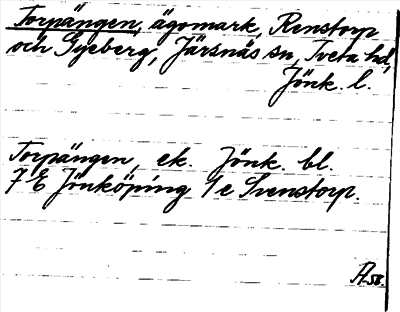 Torpängen, ägomark, Renstorp
och Gyeberg, Järsnäs sn, Tveta hd,
Jönk. l.
Torpängen, ek. Jönk. bl.
7 E Jönköping 1 e Svenstorp.
A.58.